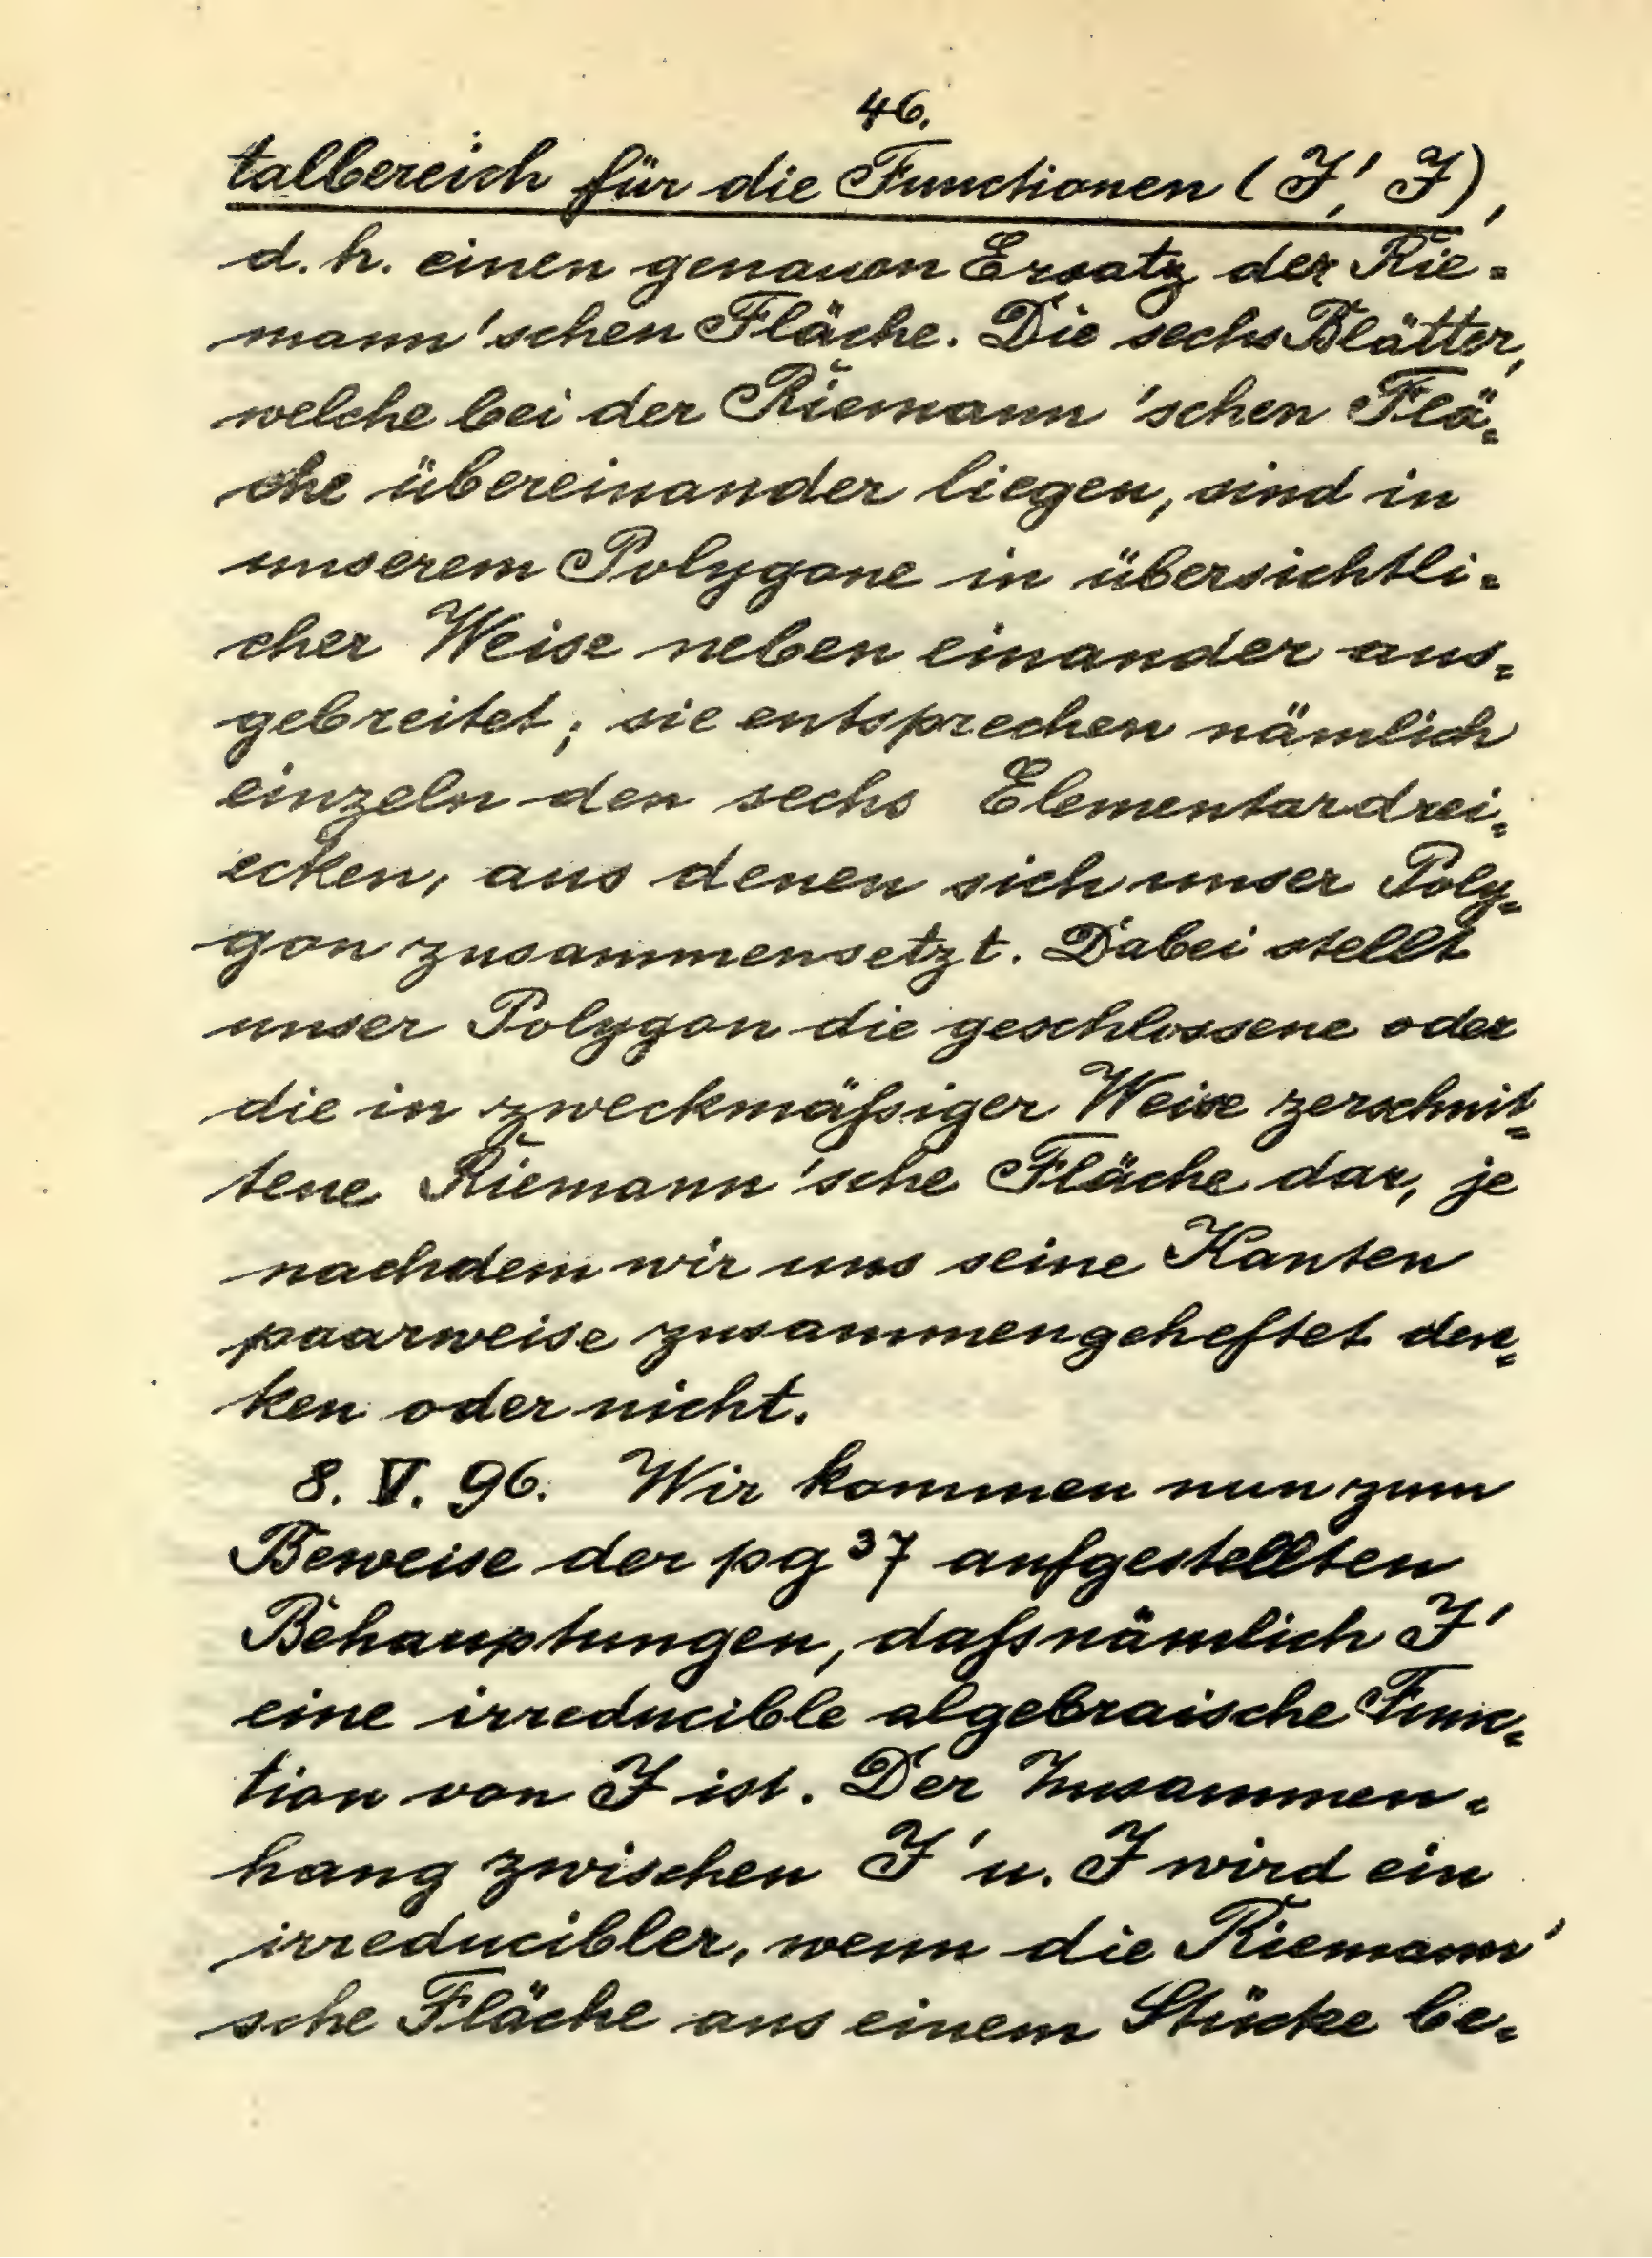 46.
talbereich für die Functionen (J', J),
d. h. einen genauen Ersatz der Rie=
mann'schen Fläche. Die sechs Blätter,
welche bei der Riemann'schen Flä=
che übereinander liegen, sind in
unserem Polygone in übersichtli=
cher Weise neben einander aus=
gebreitet; sie entsprechen nämlich
einzeln den sechs Elementardrei=
ecken, aus denen sich unser Poly=
gon zusammensetzt. Dabei stellt
unser Polygon die geschlossene oder
die in zweckmäßiger Weise zerschnit=
tene Riemann'sche Fläche dar, je
nachdem wir uns seine Kanten
paarweise zusammengeheftet den=
ken oder nicht.
8. V. 96. Wir kommen nun zum
Beweise der pg 37 aufgestellten
Behauptungen, daß nämlich J'
eine irreducible algebraische Func=
tion von J ist. Der Zusammen=
hang zwischen J' u. J wird ein
irreducibler, wenn die Riemann'
sche Fläche aus einem Stücke be=